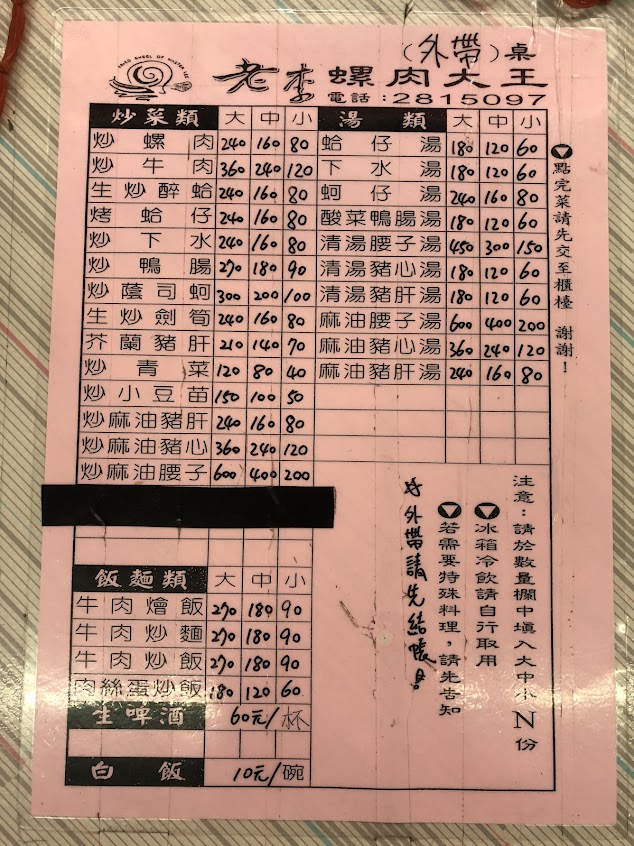 (外帶)桌
老李螺肉大王
電話:2815097
炒菜類 大 中 小
炒螺肉 240 160 80
炒牛肉 360 240 120
生炒醉蛤 240 160 80
烤蛤仔 240 160 80
炒下水 240 160 80
炒鴨腸 270 180 90
炒蔭司蚵 300 200 100
生炒劍筍 240 160 80
芥蘭豬肝 210 140 70
炒青菜 120 80 40
炒小豆苗 150 100 50
炒麻油豬肝 240 160 80
炒麻油豬心 360 240 120
炒麻油腰子 600 400 200
飯麵類 大 中 小
牛肉燴飯 270 180 90
牛肉炒麵 270 180 90
牛肉炒飯 270 180 90
肉絲蛋炒飯 180 120 60
生啤酒 60元/杯
白飯 10元/碗
湯類 大 中 小
蛤仔湯 180 120 60
下水湯 180 120 60
蚵仔湯 240 160 80
酸菜鴨腸湯 180 120 60
清湯腰子湯 450 300 150
清湯豬心湯 180 120 60
清湯豬肝湯 180 120 60
麻油腰子湯 600 400 200
麻油豬心湯 360 240 120
麻油豬肝湯 240 160 80
點完菜請先交至櫃檯 謝謝!
注意:請於數量欄中填入大中小N份
冰箱冷飲請自行取用
若需要特殊料理,請先告知
外帶請先結帳